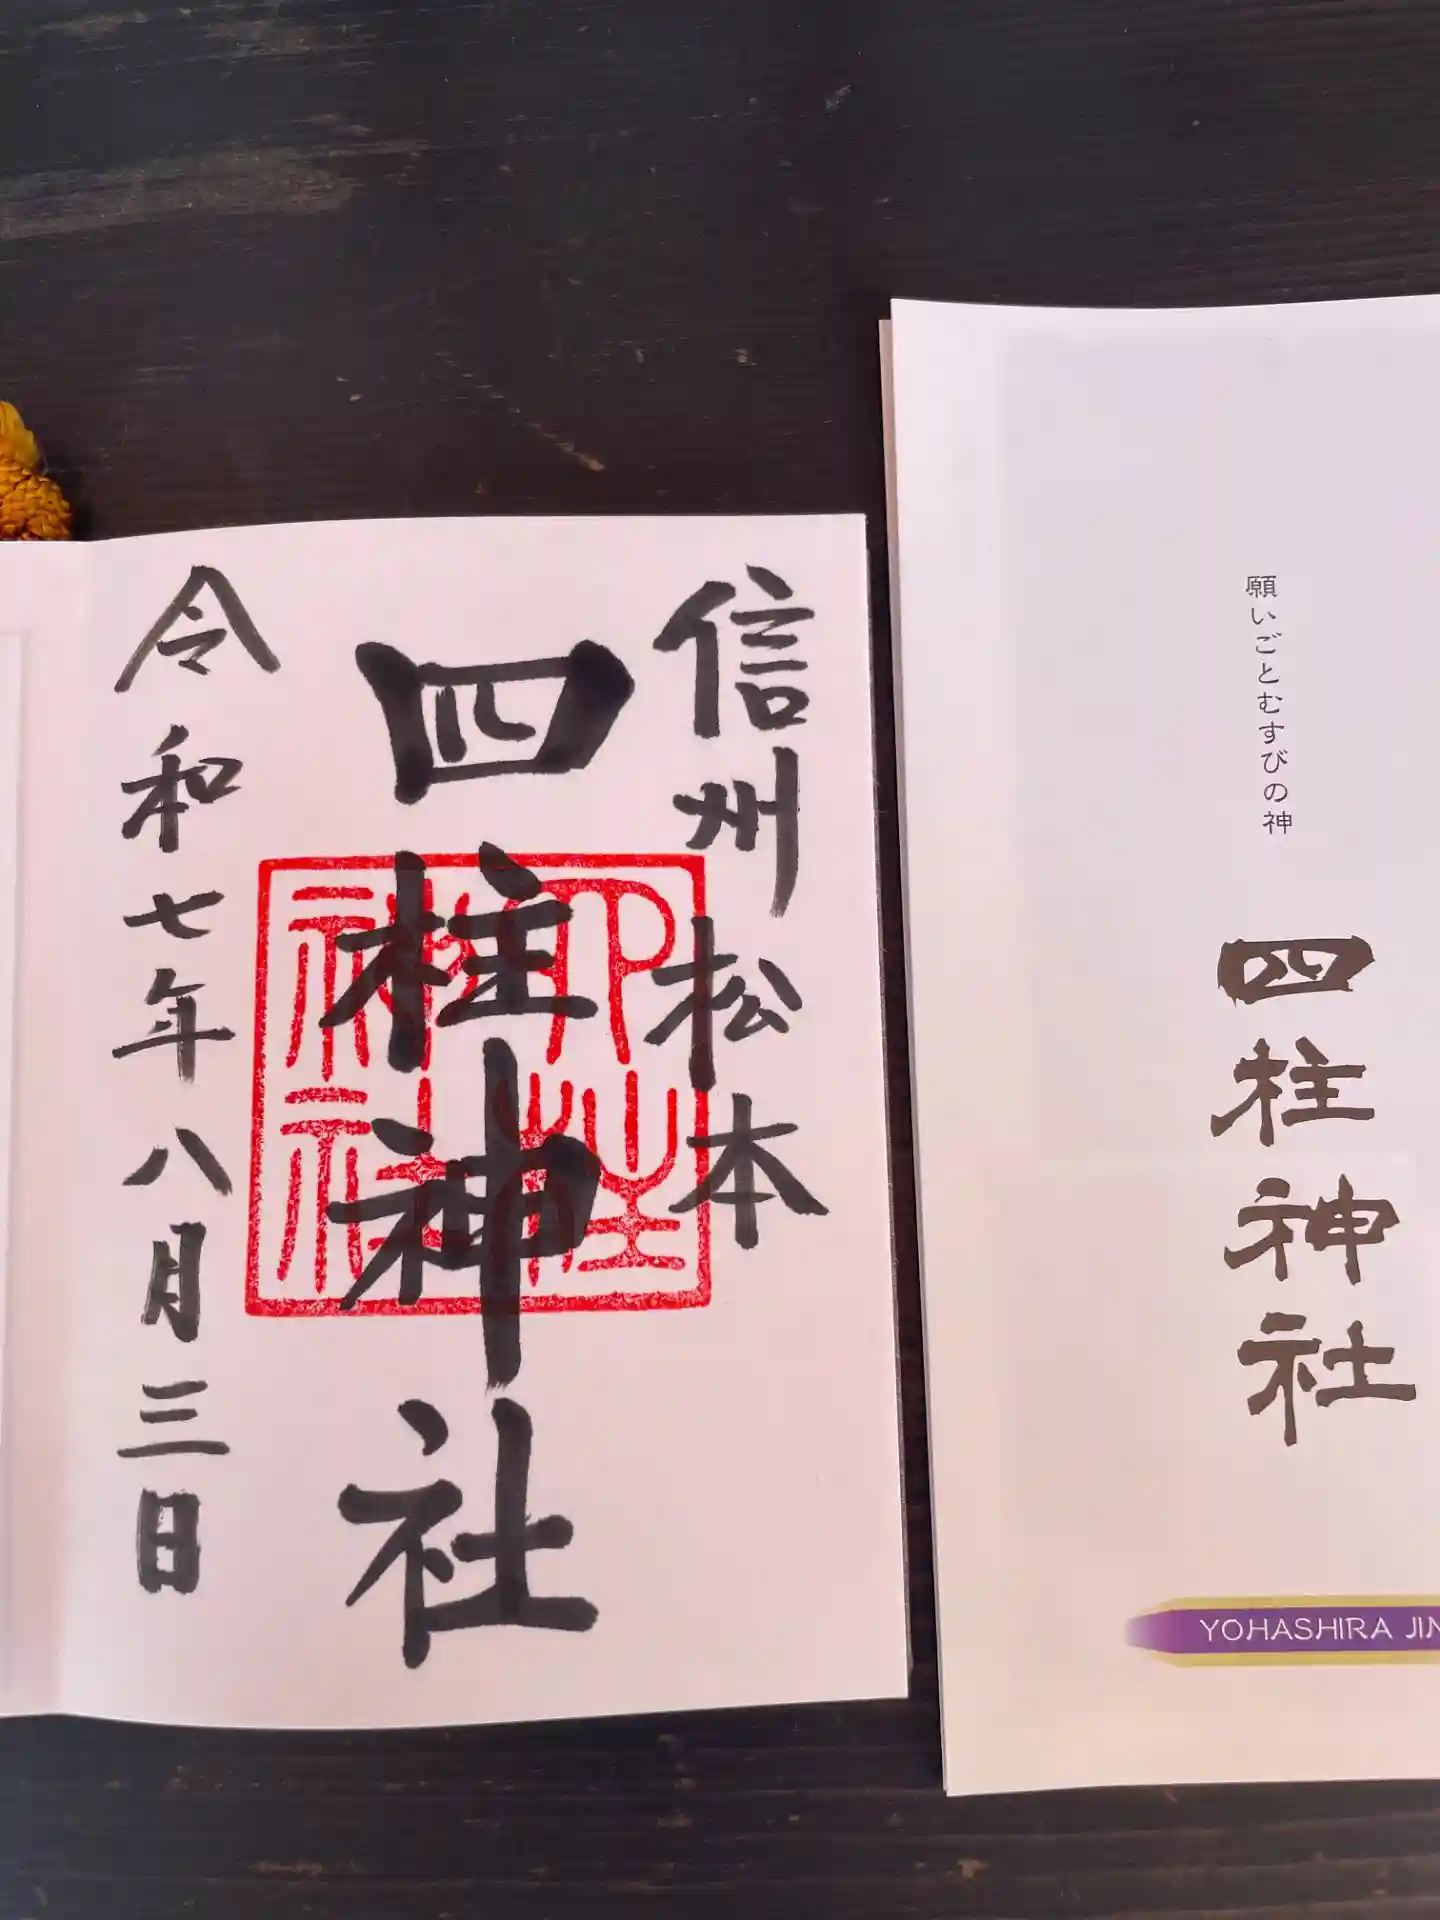 信州松本
四柱神社
令和七年八月三日
四柱神社
願いごとむすびの神
四柱神社
YOHASHIRA JIN